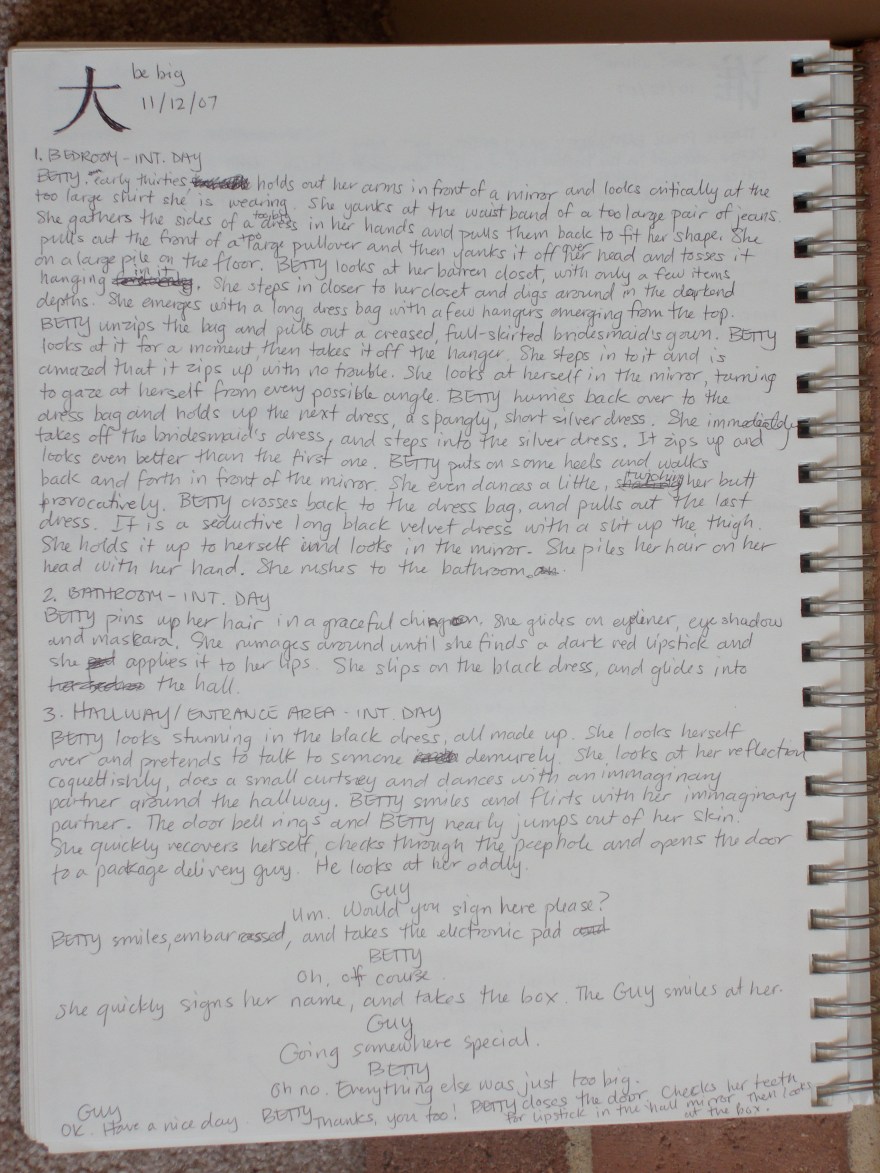 大 be big
11/12/07
1. BEDROOM - INT. DAY
BETTY, early thirties, holds out her arms in front of a mirror and looks critically at the
too large shirt she is wearing. She yanks at the waist band of a too large pair of jeans.
She gathers the sides of a too big dress in her hands and pulls them back to fit her shape. She
pulls out the front of a too large pullover and then yanks it off over her head and tosses it
on a large pile on the floor. BETTY looks at her barren closet, with only a few items
hanging in it. She steps in closer to her closet and digs around in the darkend
depths. She emerges with a long dress bag with a few hangers emerging from the top.
BETTY unzips the bag and pulls out a creased, full-skirted bridesmaid's gown. BETTY
looks at it for a moment, then takes it off the hanger. She steps in to it and is
amazed that it zips up with no trouble. She looks at herself in the mirror, turning
to gaze at herself from every possible angle. BETTY hurries back over to the
dress bag and holds up the next dress, a spangly, short silver dress. She immediately
takes off the bridesmaid's dress, and steps into the silver dress. It zips up and
looks even better than the first one. BETTY puts on some heels and walks
back and forth in front of the mirror. She even dances a little, her butt
provocatively. BETTY crosses back to the dress bag, and pulls out the last
dress. It is a seductive long black velvet dress with a slit up the thigh.
She holds it up to herself and looks in the mirror. She piles her hair on her
head with her hand. She rushes to the bathroom.
2. BATHROOM - INT. DAY
BETTY pins up her hair in a graceful chingon. She glides on eyeliner, eye shadow
and maskara. She rumages around until she finds a dark red lipstick and
she applies it to her lips. She slips on the black dress, and glides into
the hall.
3. HALLWAY/ENTRANCE AREA - INT. DAY
BETTY looks stunning in the black dress, all made up. She looks herself
over and pretends to talk to somone demurely. She looks at her reflection
coquettishly, does a small curtsey and dances with an immaginary
partner around the hallway. BETTY smiles and flirts with her immaginary
partner. The door bell rings and BETTY nearly jumps out of her skin.
She quickly recovers herself, checks through the peephole and opens the door
to a package delivery guy. He looks at her oddly.
GUY
Um. Would you sign here please?
BETTY smiles, embarrassed, and takes the electronic pad
BETTY
Oh, off course.
She quickly signs her name, and takes the box. The GUY smiles at her.
GUY
Going somewhere special.
BETTY
Oh no. Everything else was just too big.
GUY
OK. Have a nice day. BETTY Thanks, you too! BETTY closes the door. Checks her teeth
for lipstick in the hall mirror, then looks
at the box.